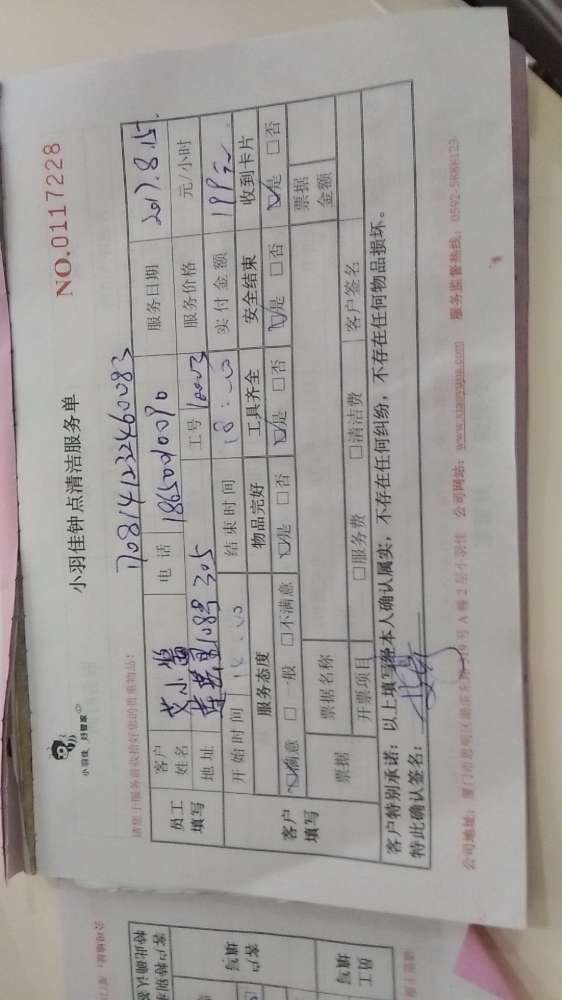 小羽佳 好管家
小羽佳钟点清洁服务单
NO.0117228
请您于服务前收拾好您的贵重物品!
170814123246 0083
员工填写
客户姓名
电话 18650010090
服务日期 2017.8.15
地址 108号305
工号 10003
服务价格 元/小时
客户填写
开始时间
结束时间 18:00
实付金额 199元
服务态度 物品完好 工具齐全 安全结束 收到卡片
☑满意 □一般 □不满意 ☑是 □否 ☑是 □否 ☑是 □否 ☑是 □否
票据 票据名称 票据金额
开票项目 □服务费 □清洁费 客户签名
客户特别承诺:以上填写经本人确认属实,不存在任何纠纷,不存在任何物品损坏。
特此确认签名:
公司地址:厦门市思明区 号A幢2层小羽佳 公司网站:www.xiaoyujia.com 服务监督热线:0592-5888123